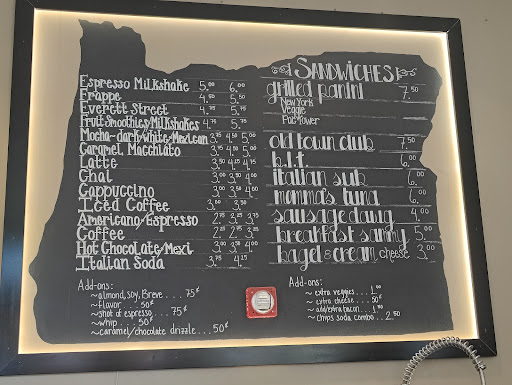 Espresso Milkshake 5.00 6.00
Frappe 4.50 5.50
Everett Street 4.75 5.75
Fruit Smoothies/Milkshakes 4.75 5.75
Mocha~dark/white/Mexican 3.75 4.50 5.00
Caramel Macchiato 3.75 4.50 5.00
Latte 3.50 4.25 4.75
Chai 3.00 3.50 4.00
Cappuccino 3.00 3.50 4.00
Iced Coffee 3.00 3.50
Americano/Espresso 2.75 3.25 3.75
Coffee 2.25 2.75 3.25
Hot Chocolate/Mexi 3.00 3.50 4.00
Italian Soda 3.75 4.25
Add-ons:
~almond, soy, Breve...75¢
~flavor...50¢
~shot of espresso...75¢
~whip...50¢
~caramel/chocolate drizzle...50¢
Sandwiches
grilled panini 7.50
New York
Veggie
Pat Tower
old town club 7.50
b.l.t. 6.00
italian sub 6.00
mamma's tuna 6.00
sausage dawg 4.00
breakfast sammy 5.00
bagel & cream cheese 3.00
Add-ons:
~ extra veggies...1.00
~ extra cheese...50¢
~ add/extra bacon...1.00
~ chips soda combo...2.50